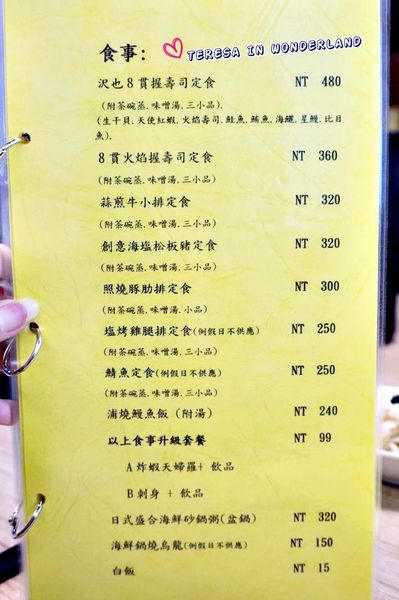 食事:
TERESA IN WONDERLAND
沢也8貫握壽司定食 NT 480
(附茶碗蒸.味噌湯.三小品).
(生干貝.天使紅蝦.火焰壽司.鮭魚.鮪魚.海鱺.星鰻.比目
魚).
8貫火焰握壽司定食 NT 360
(附茶碗蒸.味噌湯.三小品)
蒜煎牛小排定食 NT 320
(附茶碗蒸.味噌湯.三小品)
創意海塩松板豬定食 NT 320
(附茶碗蒸.味噌湯.三小品)
照燒豚肋排定食 NT 300
(附茶碗蒸.味噌湯.小品)
塩烤雞腿排定食(例假日不供應) NT 250
(附茶碗蒸.味噌湯.三小品)
鯖魚定食(例假日不供應) NT 250
(附茶碗蒸.味噌湯.三小品)
浦燒鰻魚飯(附湯) NT 240
以上食事升級套餐 NT 99
A炸蝦天婦羅+ 飲品
B刺身 + 飲品
日式盛合海鮮砂鍋粥(盆鍋) NT 320
海鮮鍋燒烏龍(例假日不供應) NT 150
白飯 NT 15